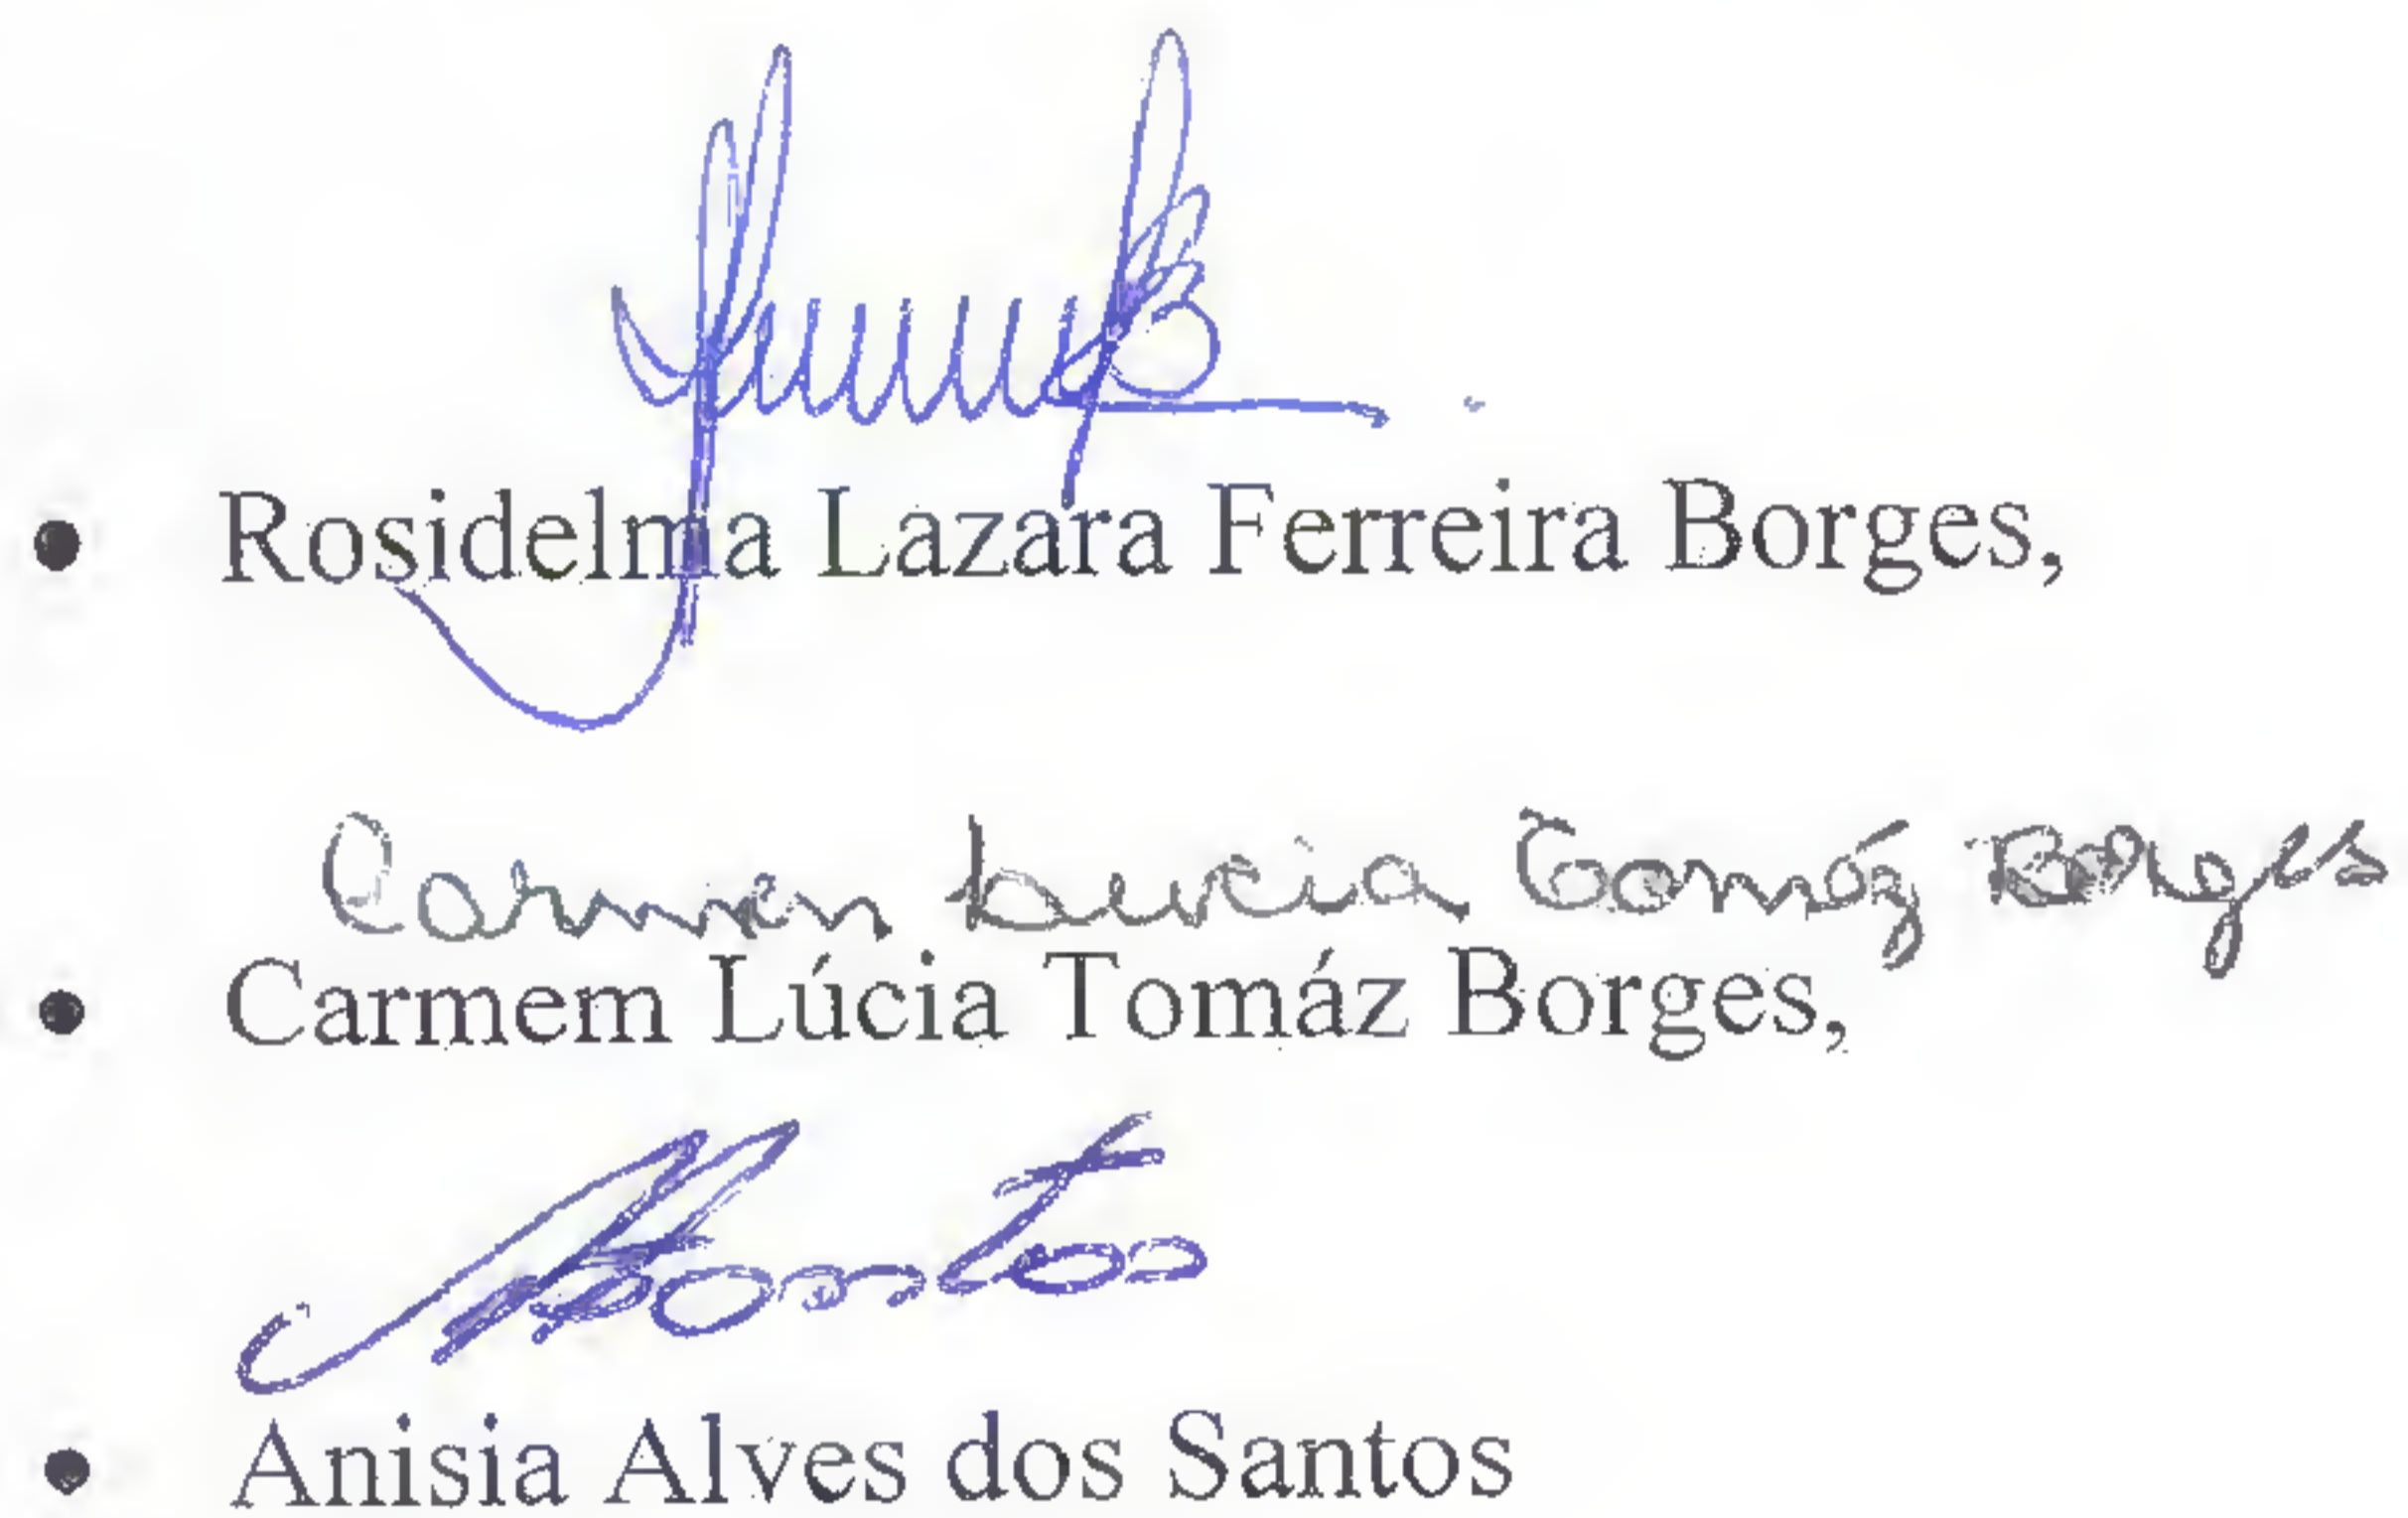 • Rosidelma Lazara Ferreira Borges,
Carmen Lucia Tomáz Borges
• Carmem Lúcia Tomáz Borges,
Santos
• Anisia Alves dos Santos